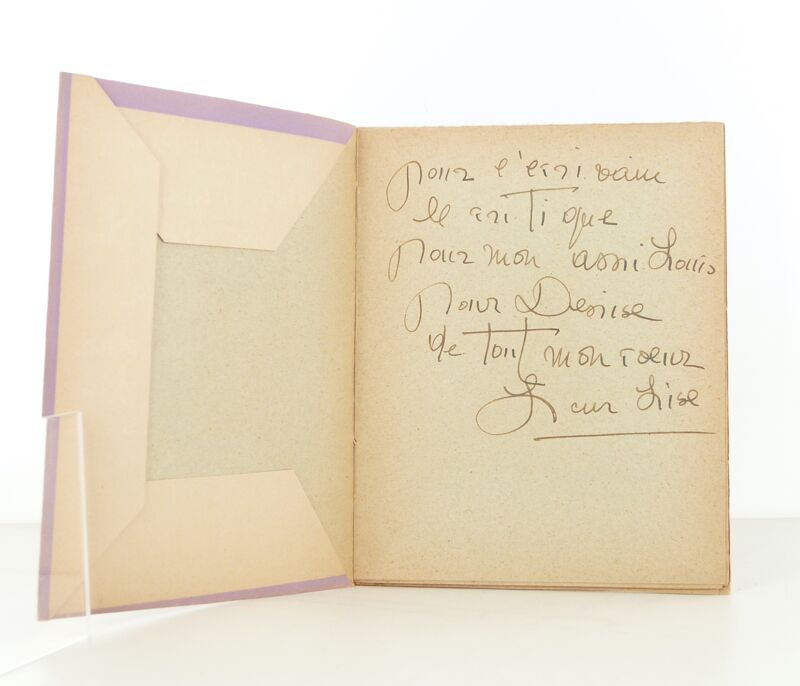 pour l'écrivain
le critique
pour mon ami Louis
pour Denise
de tout mon coeur
Leur Lise